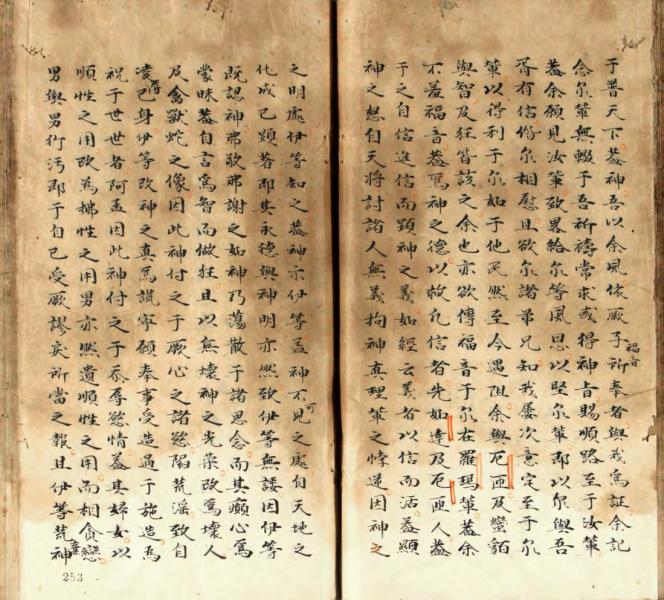 于普天下葢神吾以余風依厥子所奉者與我爲証余記
福音
念尔軰無輟于吾祈禱常求或得神旨賜順路至于汝軰
葢余願見汝軰致畧給尔等風恩以堅尔軰即以尔與吾
胥有信偕尔相慰且欲尔諸弟兄知我屢次意定至于尔
軰以得利于尔如于他民然至今遇阻余與厄匝及蠻貊
與智及狂皆該之余也亦欲傳福音于尔在羅瑪軰葢余
不羞福音葢爲神之德以救凢信者先如達及厄匝人葢
于之自信進信而顕神之義如經云義者以信而活葢顯
神之怒自天将討諸人無義拘神真理軰之悖逆因神之
之明處伊等知之葢神示伊等盖神不可見之處自天地之
化成已顕著即其永德與神明亦然致伊等無諉因伊等
既認神弗敬弗謝之如神乃蕩散于諸思念而其癡心爲
蒙昧葢自言爲智而做狂且以無壊神之光荣改爲壊人
及禽獸蛇之像因此神付之于厥心之諸慾陷荒淫致自
凌己身伊等改神之真爲謊寧願奉事受造過于施造為
祝于世世者阿孟因此神付之于忝辱慾情葢其婦女以
順性之用改為拂性之用男亦然遺順性之用而相貪戀
男與男行汚即于自己受厥謬戾所當之報且伊等荒神
253